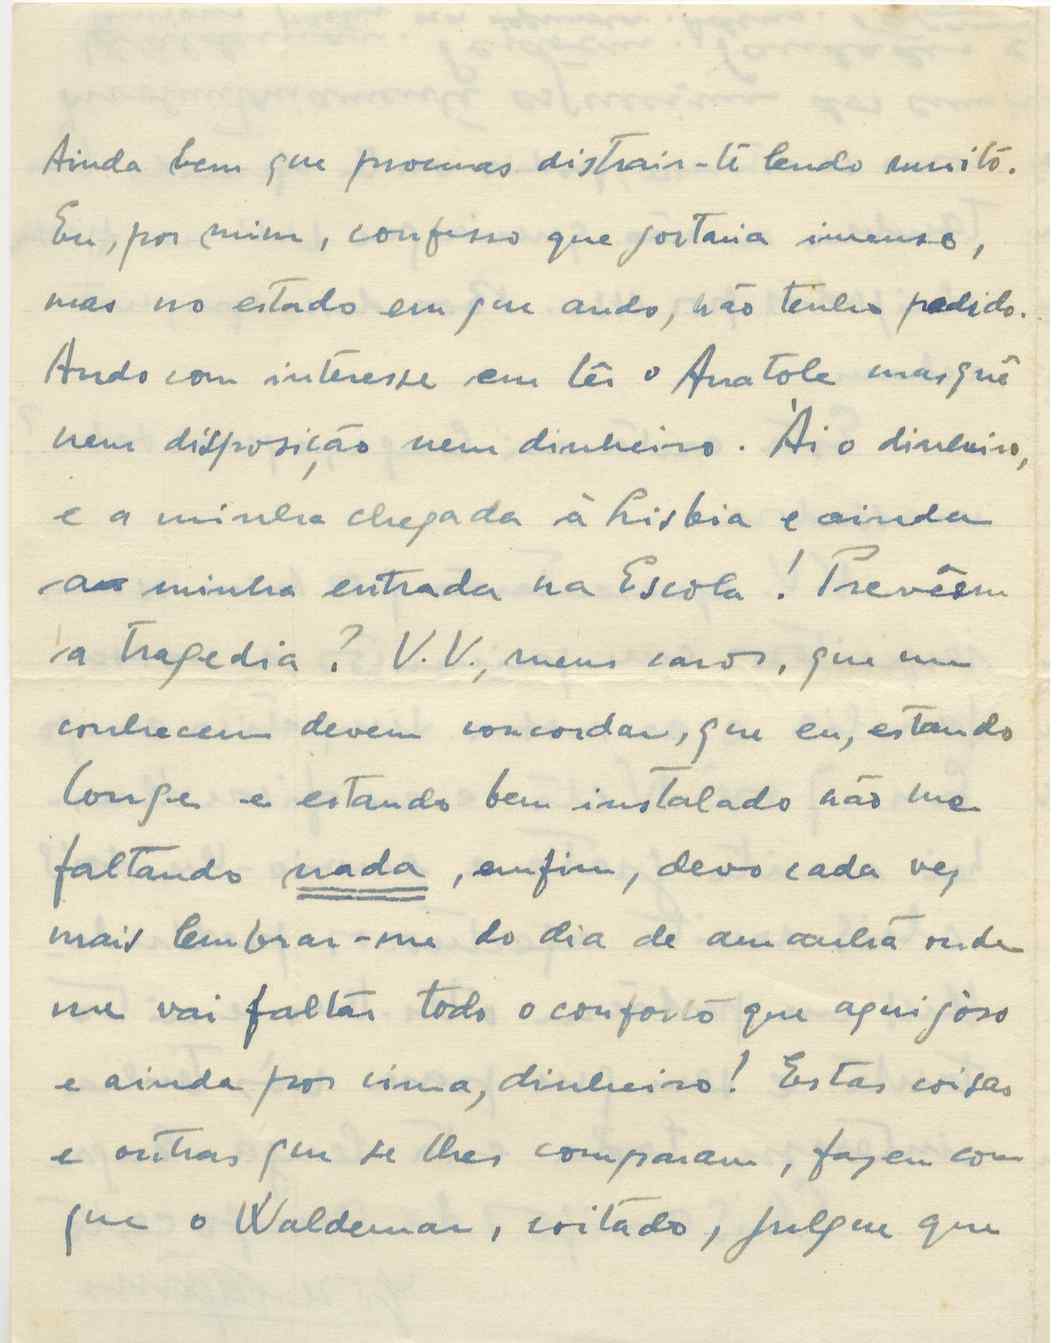 Ainda bem que procuras distrair-te lendo muito.
Eu, por mim, confesso que gostaria imenso,
mas no estado em que ando, não tenho podido.
Ando com interesse em lêr o Anatole mas quê
nem disposição nem dinheiro. Ài o dinheiro,
e a minha chegada à Lisbia e ainda
a minha entrada na Escola! Prevêem
a tragedia? V.V., meus caros, que me
conhecem devem concordar, que eu, estando
longe e estando bem instalado não me
faltando nada, emfim, devo cada vez
mais lembrar-me do dia de amanhã onde
me vai faltar todo o conforto que aqui gòso
e ainda por cima, dinheiro! Estas coisas
e outras que se lhes comparam, fazem com
que o Waldemar, coitado, julgue que